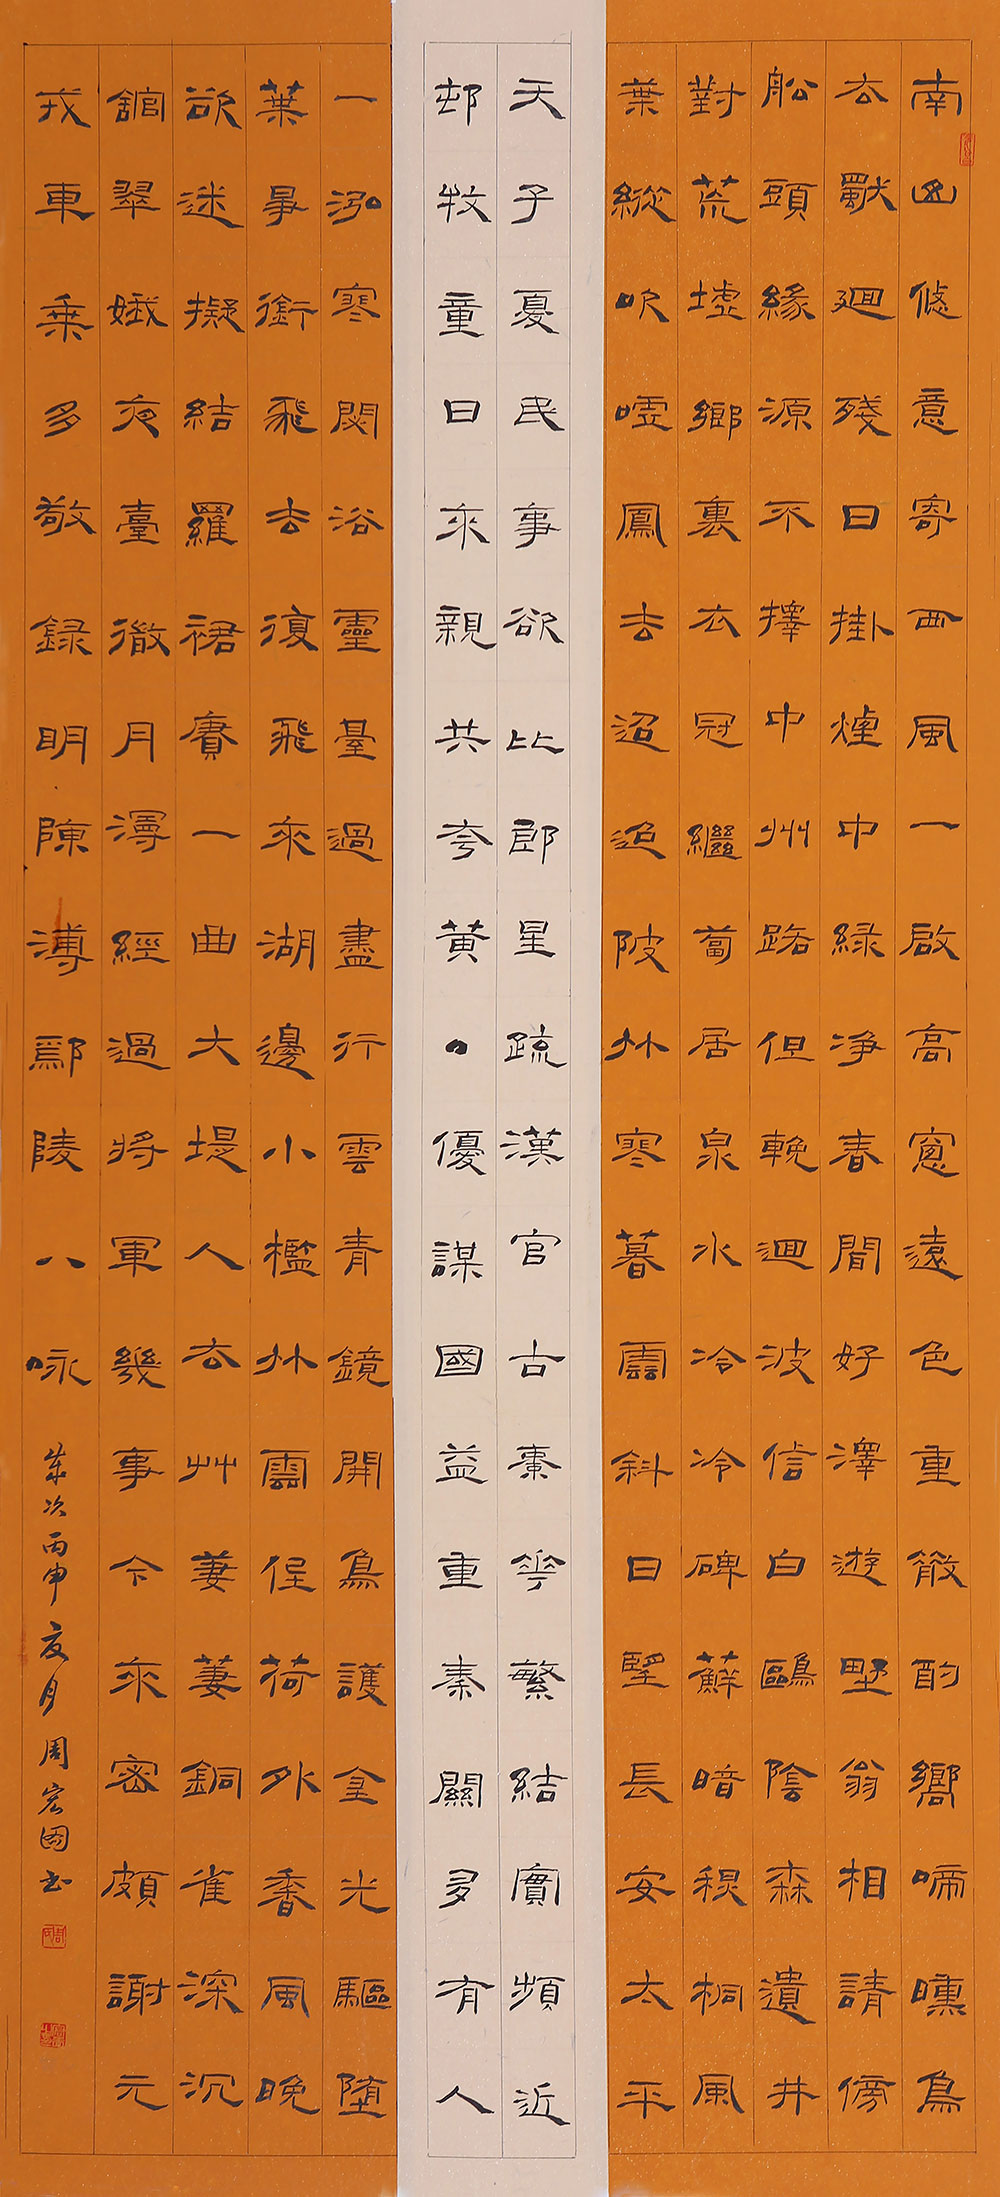 南山悠意寄西風一啟高窻遠色重散酌嚮啼曛鳥
厺獸廻殘日掛煙中緑净春間好澤遊野翁相請傍
船頭緣源不擇中州路但輓迴波信白鷗陰森遺井
對荒墟鄉裏衣冠繼蔔居泉水冷冷碑蘚暗桐風
葉縱吹噓鳳去迢迢陂林寒暮雲斜日望長安太平
天子憂民事欲比郎星疏漢官古棗華繁結實頻近
邨牧童日來親共夸黄丶優謀國益重秦關多有人
一泓寒閟浴靈臺過盡行雲青鏡開鳥護金光驅墮
葉銜飛去復飛來湖邊小檻林雲荷外香風晚
欲迷擬結羅裙賡一曲大堤人厺艸萋萋銅雀深沉
舘翠娥夜臺徹月潯經過將軍幾事今來密頗謝元
戎車乘多敬録明陳溥鄢陵八咏
歲次丙申夏月周宏國書